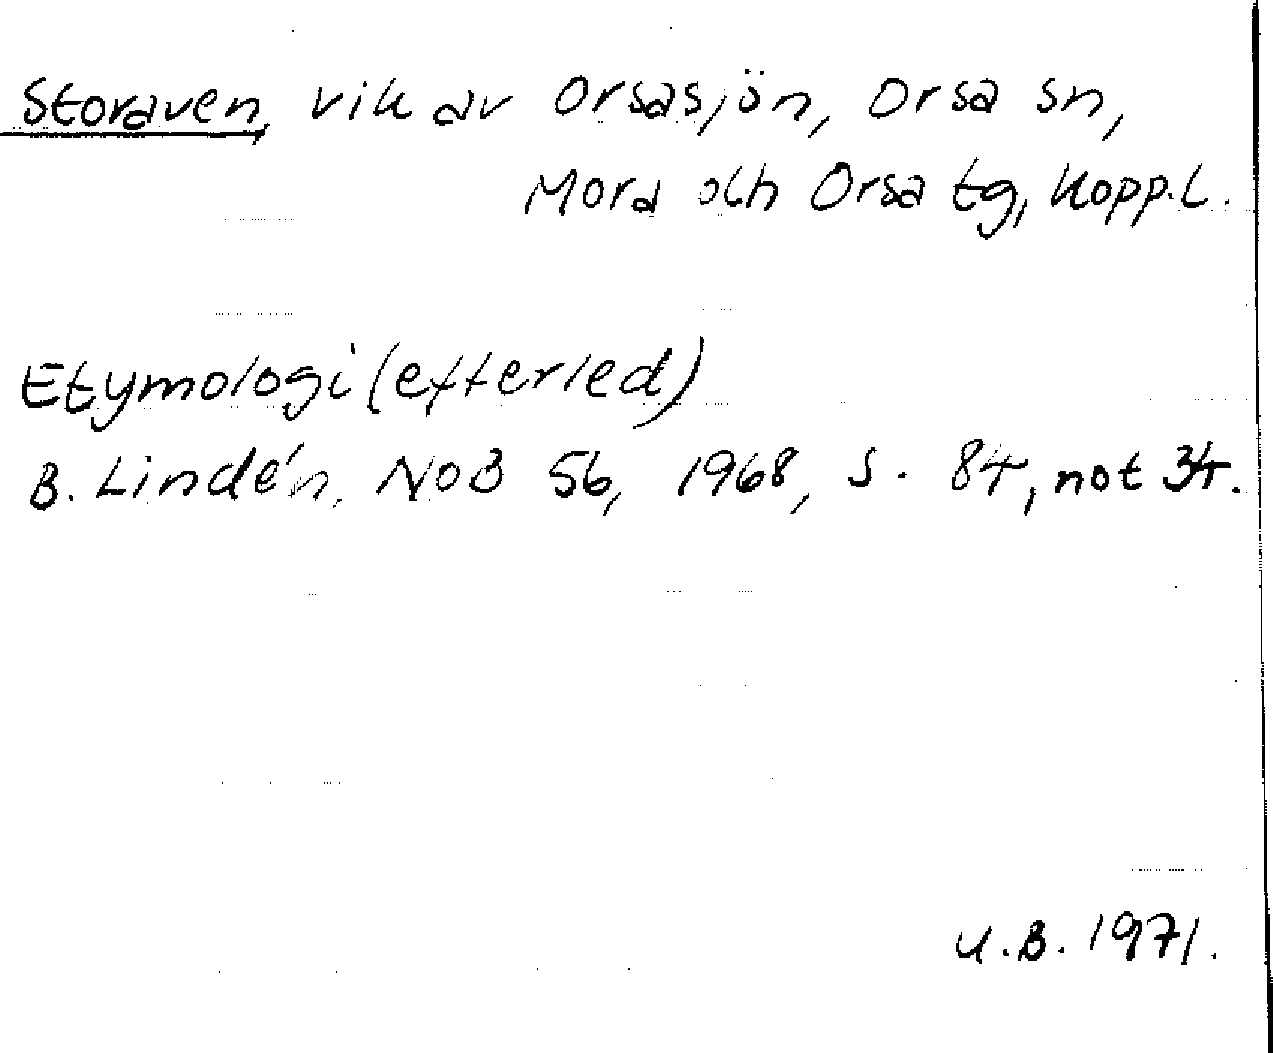 Storaven, vik av Orsasjön, Orsa sn,
Mora och Orsa tg, Kopp.L.
Etymologi (efterled)
B. Lindén, NoB 56, 1968, s. 84, not 34.
U.B. 1971.